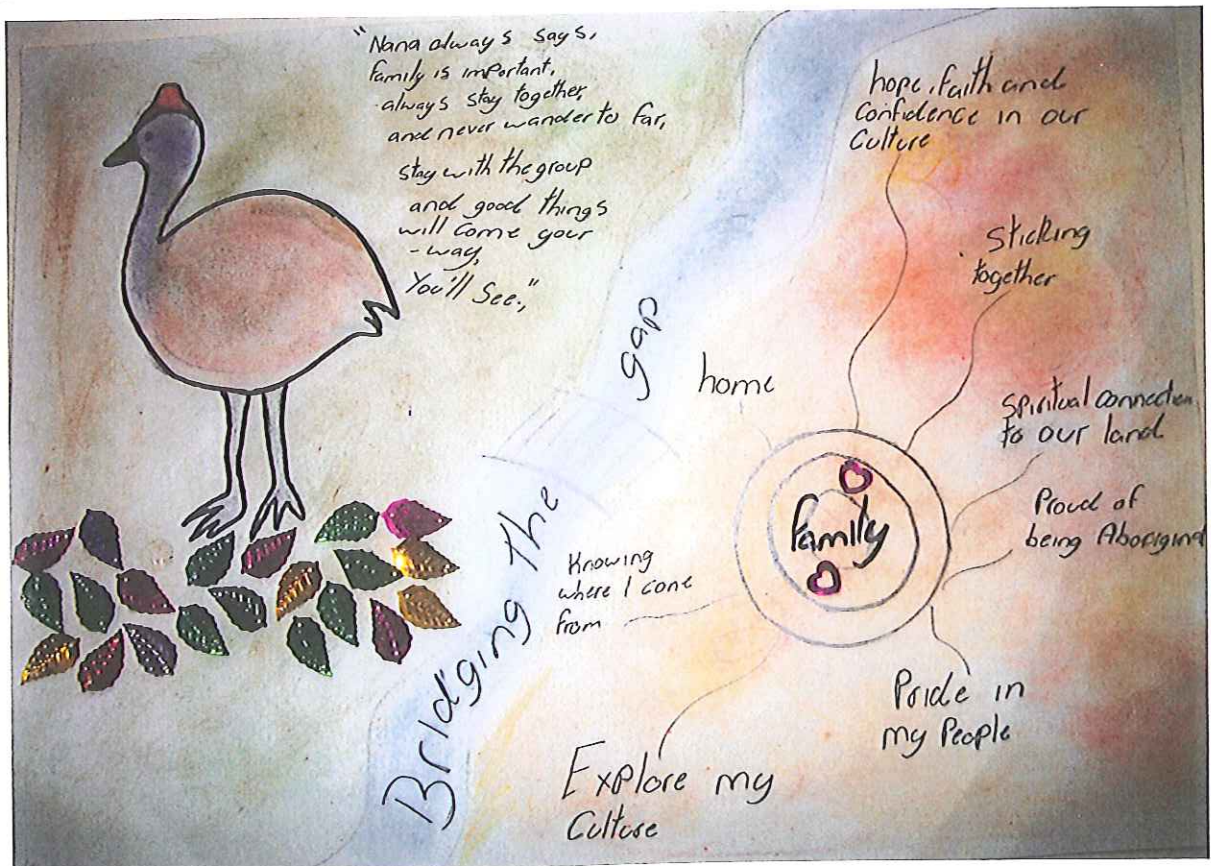 "Nana always says,
family is important,
always stay together,
and never wander to far,
stay with the group
and good things
will come your
- way,
You'll See.,"
Bridging the gap
hope, faith and
confidence in our
Culture
Sticking
together
home
Spiritual connection
to our land
Proud of
being Aboriginal
family
Knowing
where I come
from
Pride in
my People
Explore my
Culture